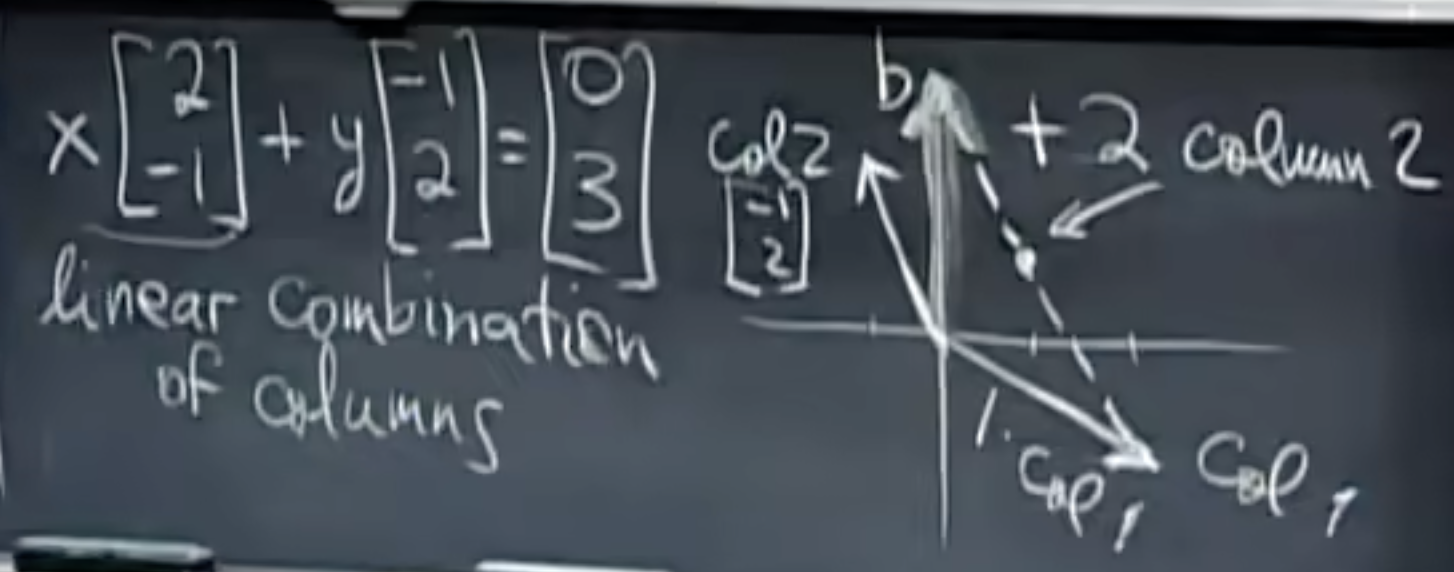 x [2 -1] + y [-1 2] = [0 3]
linear combination
of columns
b
col 2
[-1 2]
+ 2 column 2
1 · Col 1
Col 1